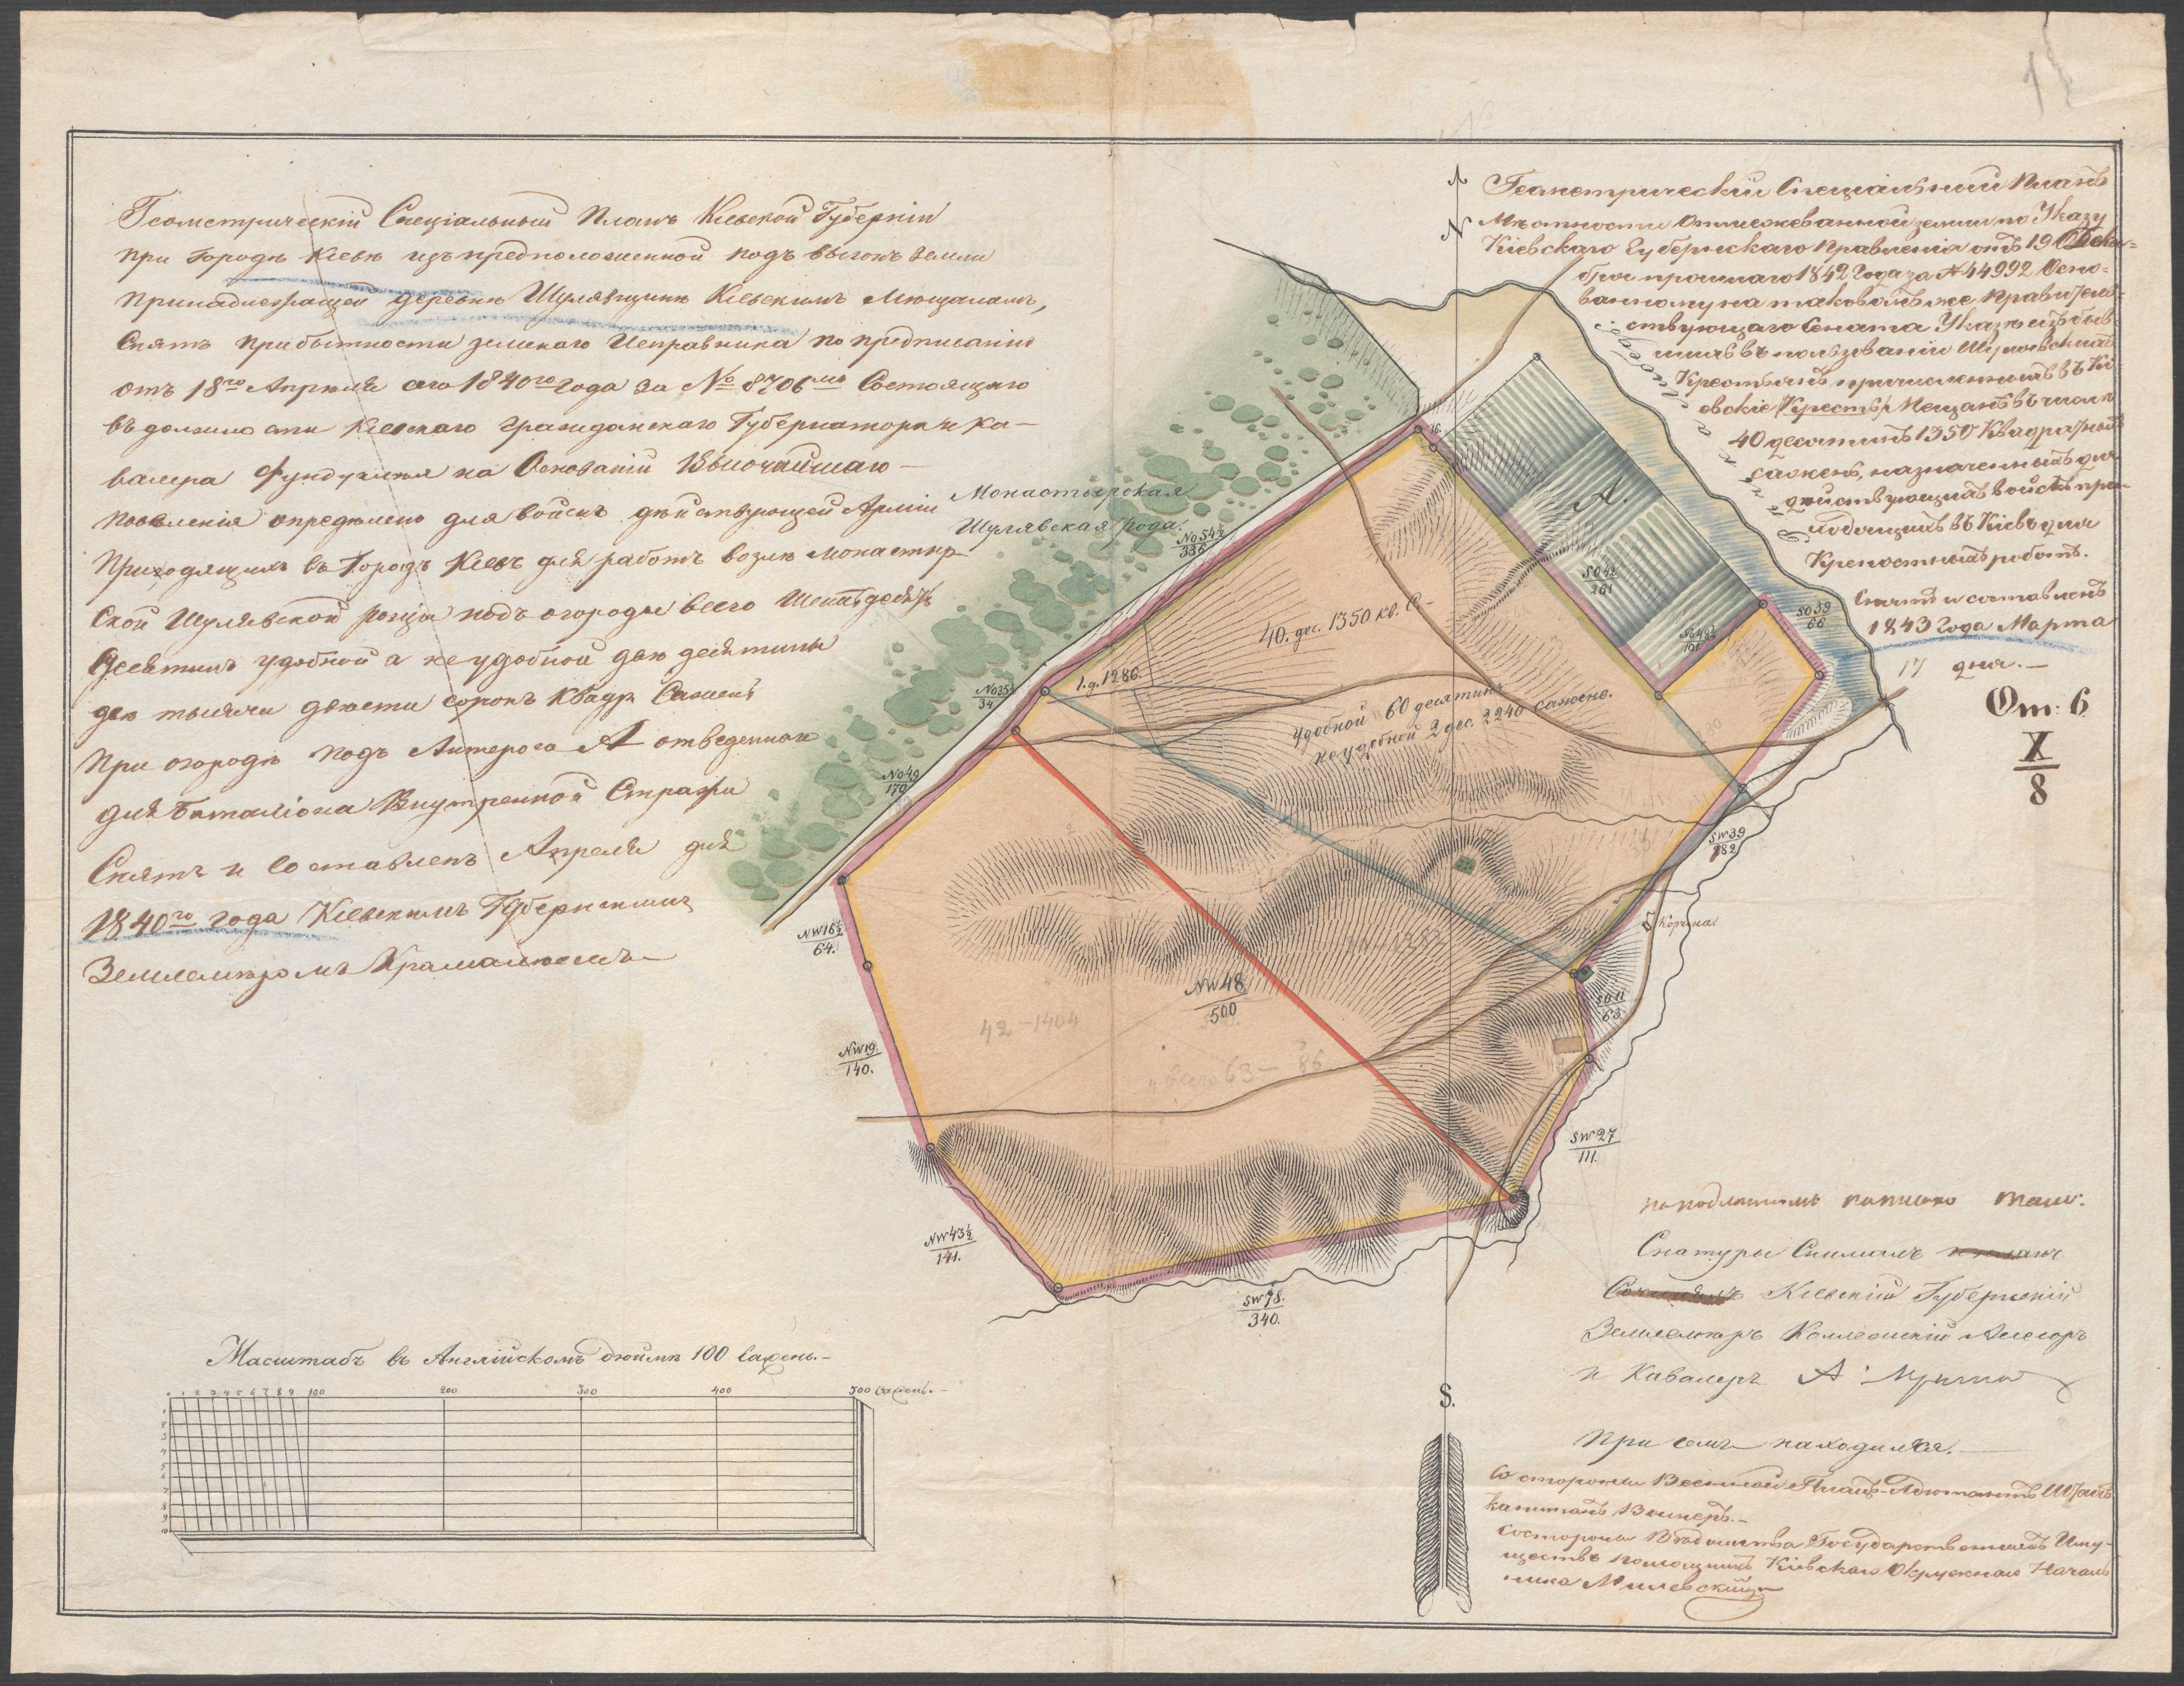 Геометрическій Спеціальный Планъ Кіевской Губерніи
при Городѣ Кіевѣ изъ предположенной подъ выгонъ земли
принадлежащей деревнѣ Шулявщинѣ Кіевскимъ Мѣщанамъ,
Снятъ при бытности земскаго Исправника по предписанію
отъ 18го Апрѣля сего 1840го года за № 8706мъ Состоящаго
въ должности Кіевскаго Гражданскаго Губернатора и Ка-
валера Фундуклея на Основаніи Высочайшаго
повелѣнія опредѣлено для войскъ дѣйствующей Арміи
Приходящихъ въ Городъ Кіевъ для работъ возлѣ монастыр
ской Шулявской рощи подъ огороды всего Шестьдесятъ
десятинъ удобной а неудобной двѣ десятины
двѣ тысячи двѣсти сорокъ квадр Сажень
при огородѣ подъ Литерою А отведенная
для Баталіона Внутренной Стражи
Снятъ и Составленъ Апреля дня
1840го года Кіевскимъ Губернскимъ
Землемѣромъ
Геометрическій Спеціальный Планъ
Мѣстности Отмежеванной земли по Указу
Кіевскаго Губернскаго Правленія отъ 19 Декя-
бря прошлаго 1842 года за № 44992 Осно-
ванному на таковомъ же Правитель-
ствующаго Сената Указѣ изъ быв-
шихъ въ пользованіи Шулявскихъ
Крестьянъ, причисленныхъ въ Кі
евскіе Мещанъ въ числѣ
40 десятинъ 1350 Квадратныхъ
саженъ, назначенныхъ для
дѣйствующихъ войскъ при-
ходящихъ въ Кіевъ для
Крепостныхъ работъ.
Снятъ и составленъ
1843 Года Марта
17 дня.-
От: 6
X
8
N
А.
Рѣчка Лыбедь
Монастырская
Шулявская роща.
NO 54½
336
16.
SO 42
261
NO 48½
101
SO 39
66
40. дес. 1350 кв. С-
1. д. 1286.
удобной 60 десятинъ
неудобной 2 дес. 2240 сажень.
NO 35½
34
NO 49
170
SW 39
182
Корчма
NW 16½
64.
NW 48
500
SO 11
63.
42 - 1464
всего 63 - 86
NW 19.
140.
SW 27
111.
NW 43½
141.
SW 78.
340.
на подлинномъ написано такъ:
Снатуры Снималъ
Кіевскій Губернскій
Землемѣръ Коллежскій Асесоръ
и Кавалеръ А
При семъ находился.
Со стороны Военной Плацъ-Адютантъ Штабъ
Капитанъ
Состороны Вѣдомства Государственныхъ Иму-
ществъ помощникъ Кіевскаго Окружнаго Началь
ника Милевскій
Масштабъ въ Англійскомъ дюймѣ 100 сажень.-
0 1 2 3 4 5 6 7 8 9 100 200 300 400 500 сажень.-
1
2
3
4
5
6
7
8
9
10
S.